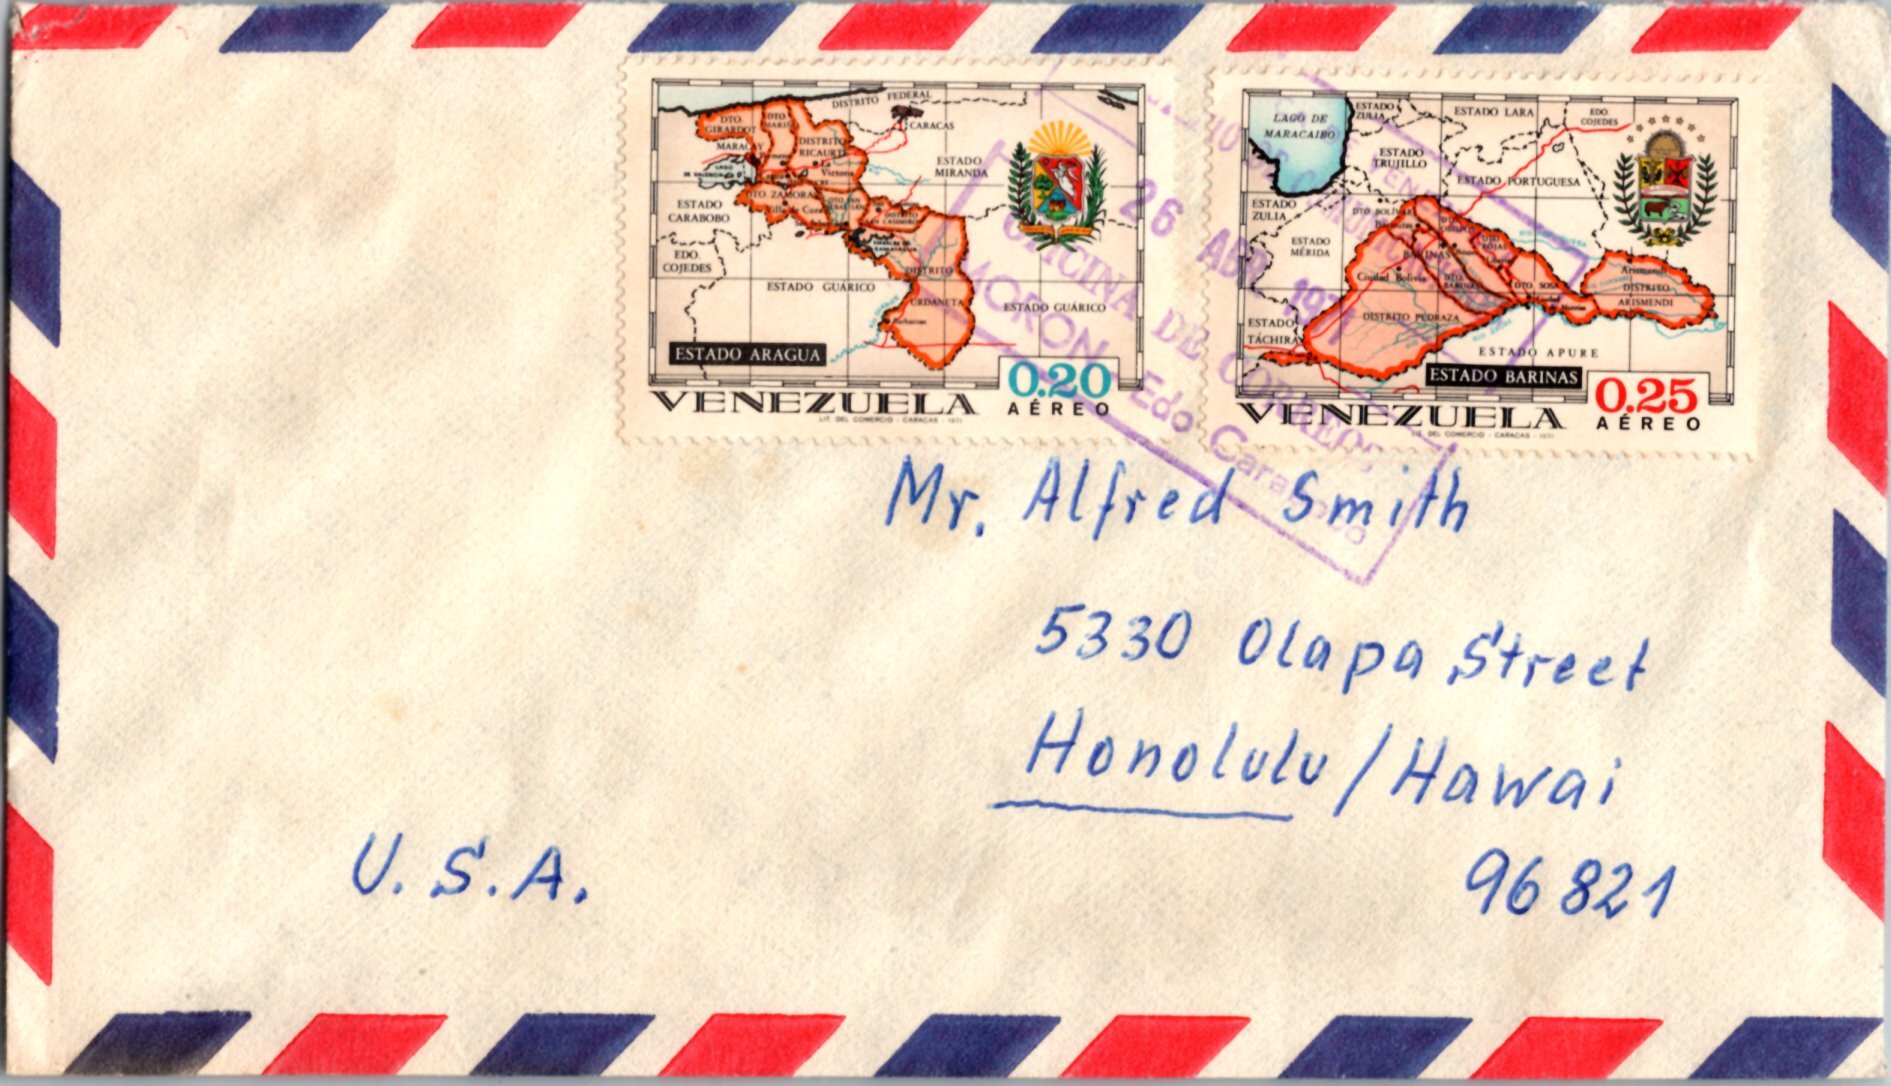 DISTRITO FEDERAL
CARACAS
DTO. GIRARDOT
DTO MARIÑO
DISTRITO RICAURTE
MARACAY
La Victoria
LAGO DE VALENCIA
DTO. ZAMORA
Villa de Cura
ESTADO MIRANDA
ESTADO CARABOBO
EDO. COJEDES
ESTADO GUÁRICO
DISTRITO URDANETA
Barbacoas
ESTADO GUÁRICO
ESTADO ARAGUA
0.20
VENEZUELA
AÉREO
LIT. DEL COMERCIO - CARACAS - 1971
LAGO DE MARACAIBO
ESTADO ZULIA
ESTADO LARA
EDO COJEDES
ESTADO TRUJILLO
ESTADO PORTUGUESA
ESTADO ZULIA
DTO BOLÍVAR
ESTADO MÉRIDA
DTO ROJAS
BARINAS
Ciudad Bolivia
DTO. BARINAS
DTO SOSA
Arismendi
DISTRITO ARISMENDI
DISTRITO PEDRAZA
ESTADO TÁCHIRA
ESTADO APURE
ESTADO BARINAS
0.25
VENEZUELA
AÉREO
LIT. DEL COMERCIO - CARACAS - 1971
VENEZUELA
26 ABR 197
OFICINA DE CORREOS
MORON Edo Carabobo
Mr. Alfred Smith
5330 Olapa Street
Honolulu / Hawai
96821
U.S.A.